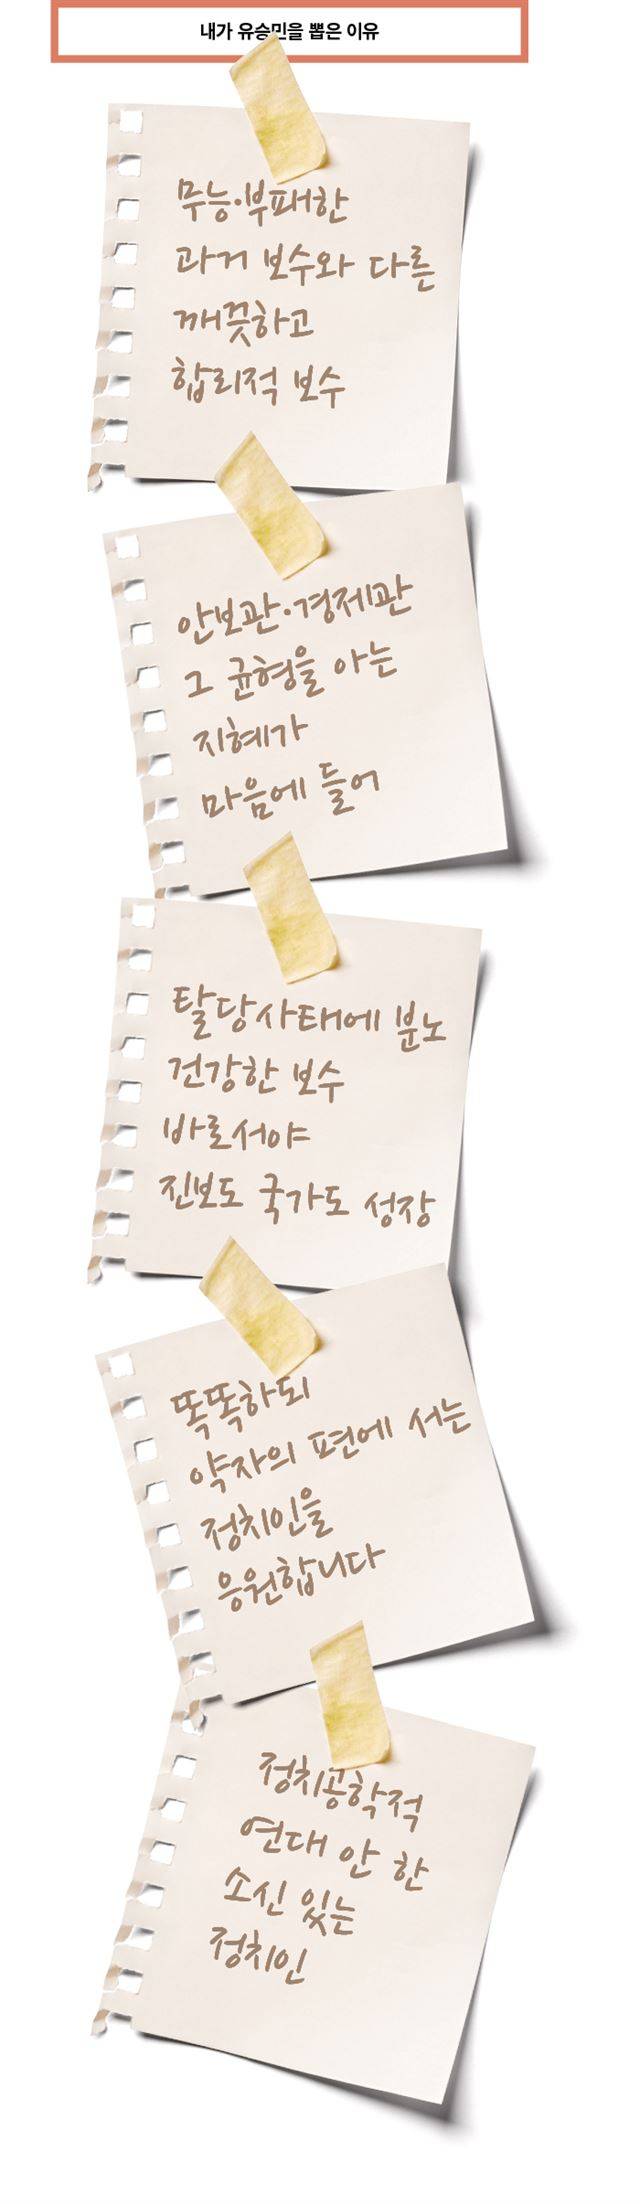 내가 유승민을 뽑은 이유
무능·부패한
과거 보수와 다른
깨끗하고
합리적 보수
안보관·경제관
그 균형을 아는
지혜가
마음에 들어
탈당사태에 분노
건강한 보수
바로서야
진보도 국가도 성장
똑똑하되
약자의 편에 서는
정치인을
응원합니다
정치공학적
연대 안 한
소신 있는
정치인